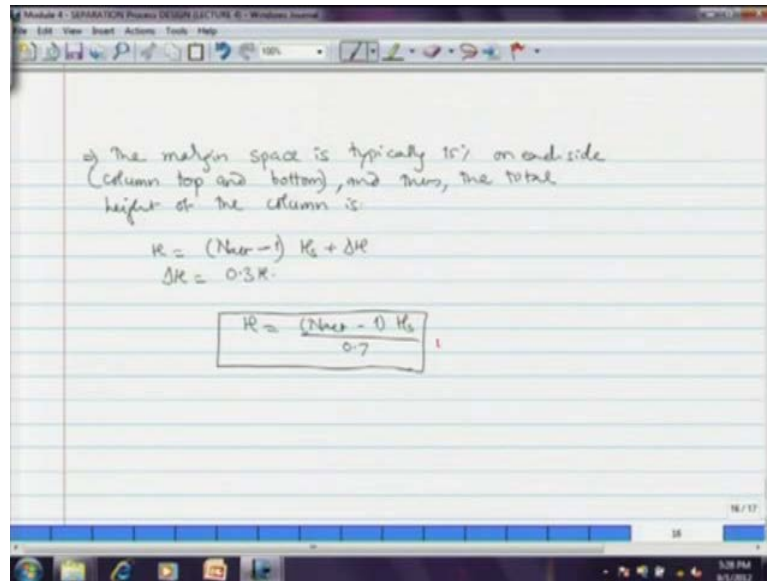 Module 4 - SEPARATION Process DESIGN (LECTURE 4) - Windows Journal
File Edit View Insert Actions Tools Help
100%
⇒ The margin space is typically 15% on each side
(column top and bottom), and thus, the total
height of the column is:
H = (Nact - 1) Hs + ΔH
ΔH = 0.3H.
H = (Nact - 1) Hs
0.7
16 / 17
16
5:28 PM